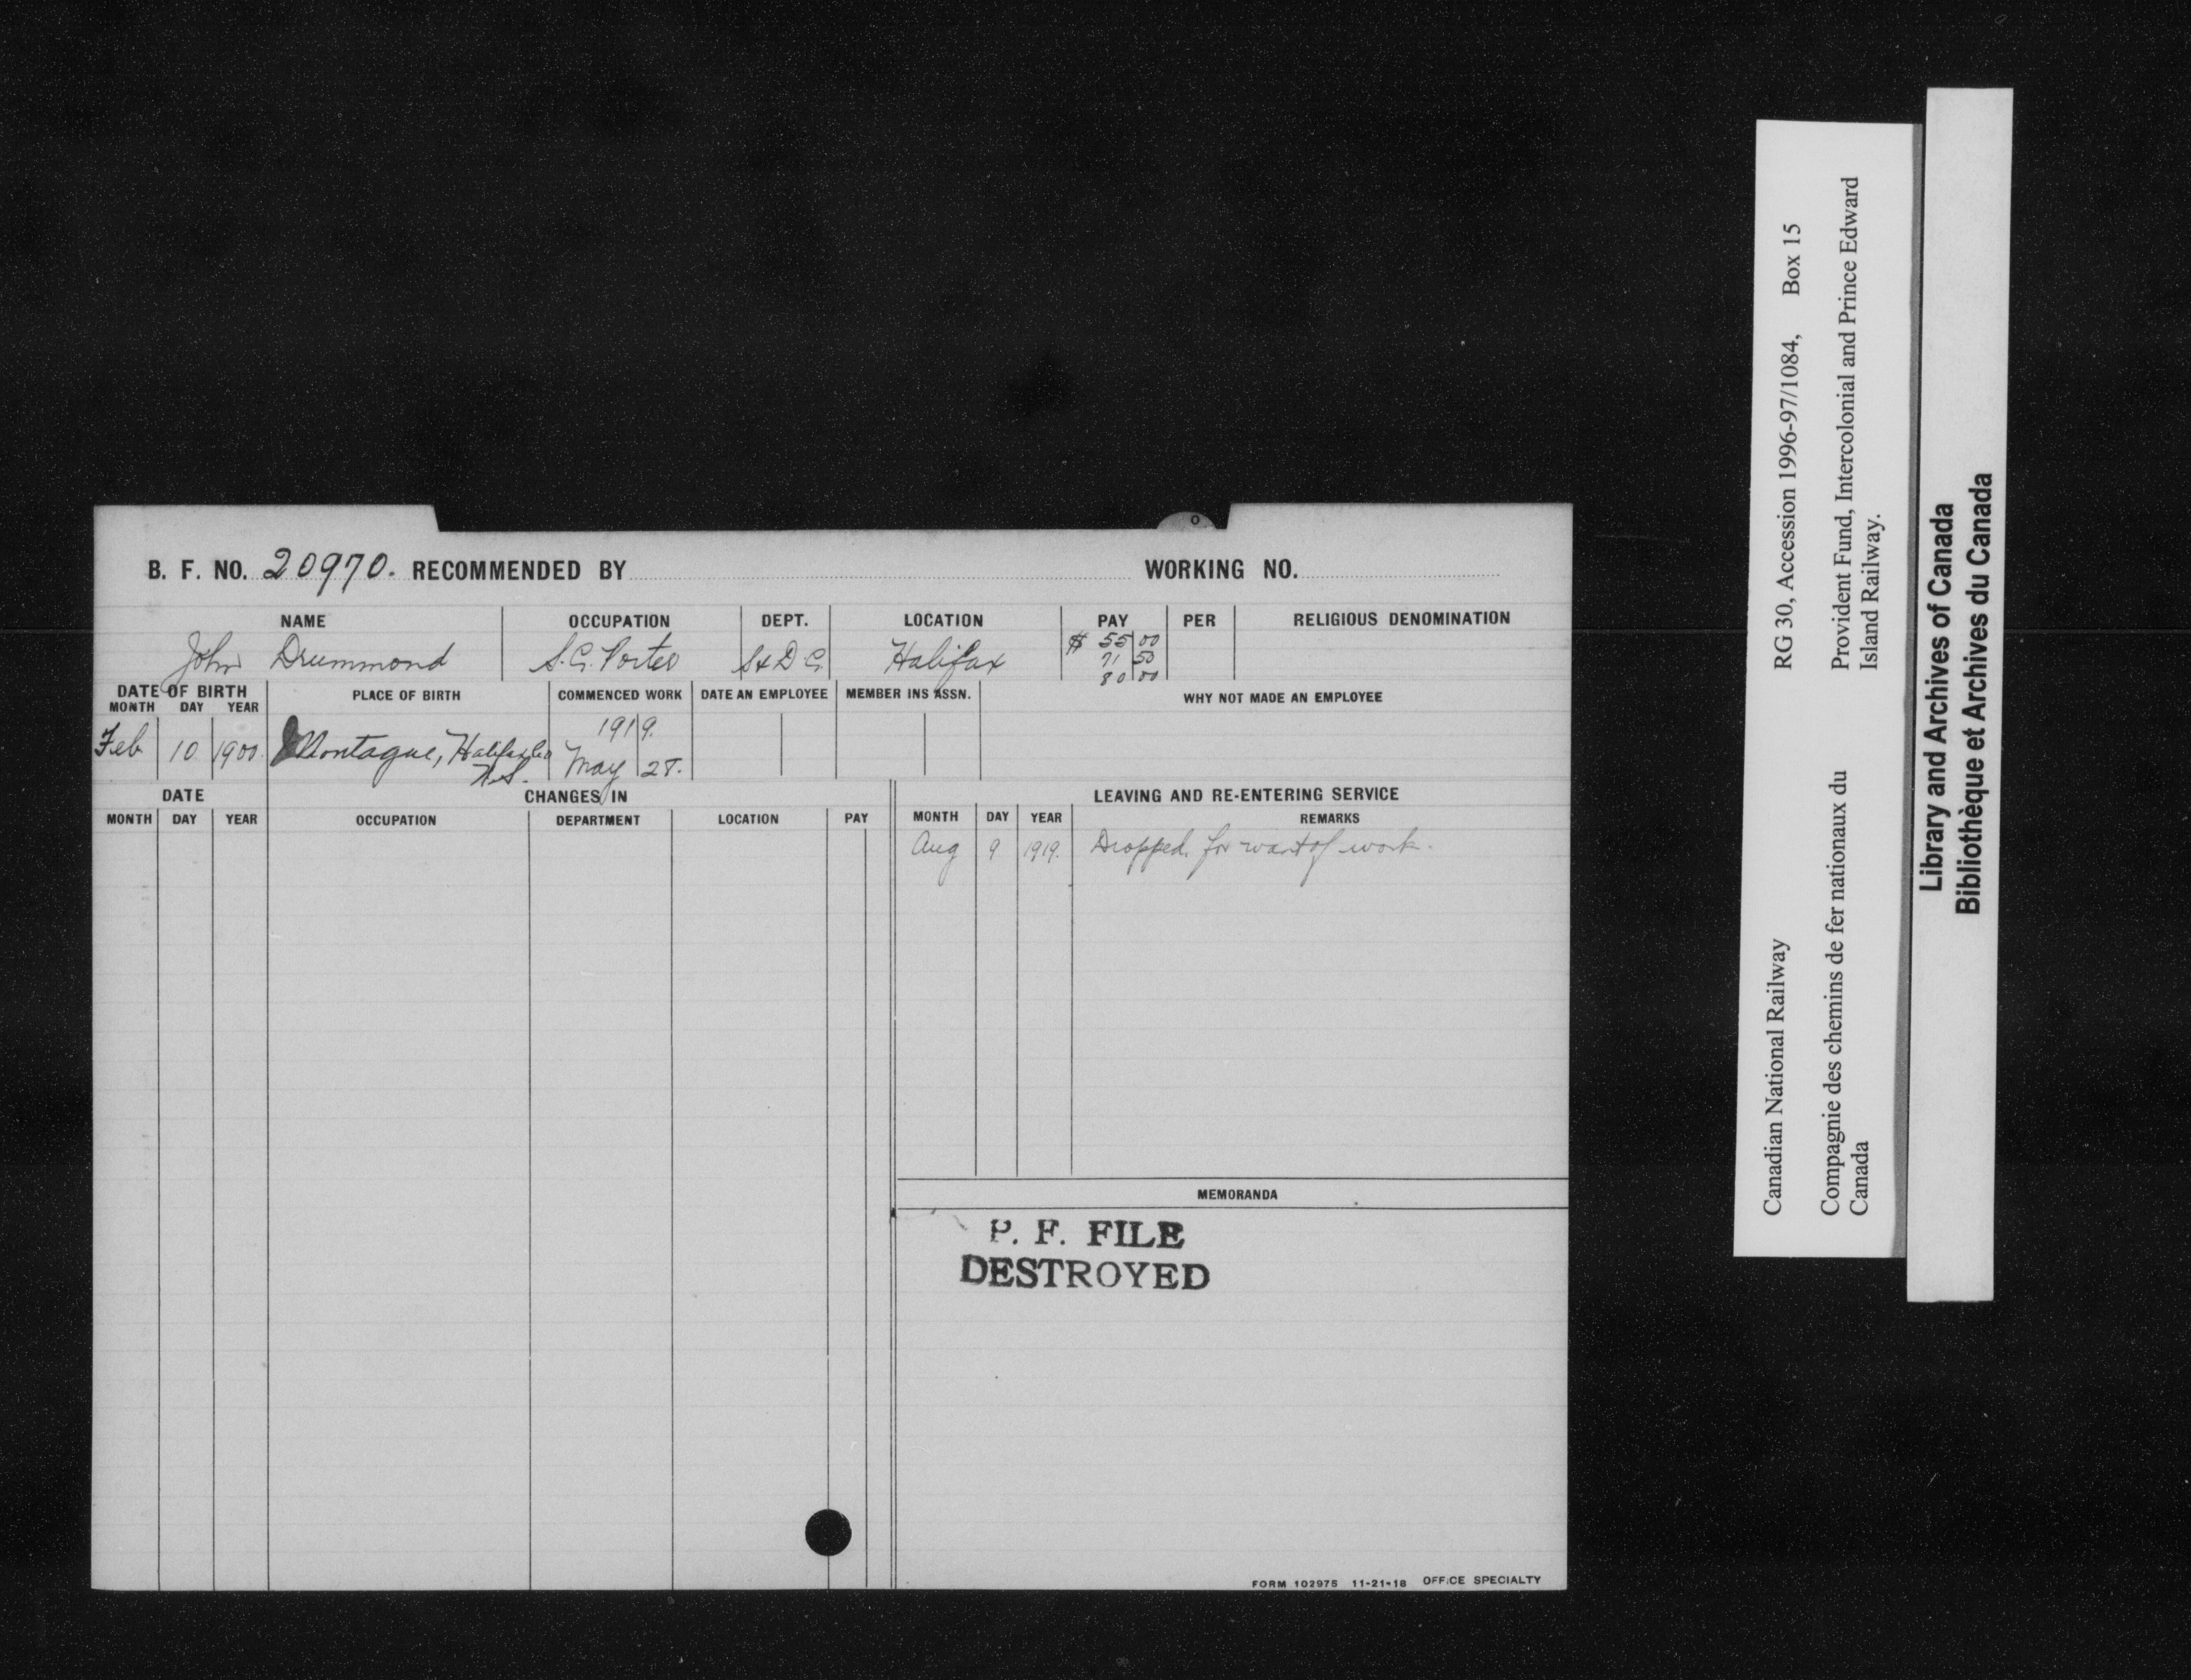 B. F. NO. 20970. RECOMMENDED BY WORKING NO.
NAME OCCUPATION DEPT. LOCATION PAY PER RELIGIOUS DENOMINATION
John Drummond S.C. Porter S & D C. Halifax $ 55 00
71 50
80 00
DATE OF BIRTH PLACE OF BIRTH COMMENCED WORK DATE AN EMPLOYEE MEMBER INS ASSN. WHY NOT MADE AN EMPLOYEE
MONTH DAY YEAR
1919.
Feb 10 1900. Montague, Halifax Co May 28.
N.S.
DATE CHANGES IN LEAVING AND RE-ENTERING SERVICE
MONTH DAY YEAR OCCUPATION DEPARTMENT LOCATION PAY MONTH DAY YEAR REMARKS
Aug 9 1919. Dropped for want of work.
MEMORANDA
P. F. FILE
DESTROYED
FORM 102975 11-21-18 OFFICE SPECIALTY
Canadian National Railway RG 30, Accession 1996-97/1084, Box 15
Compagnie des chemins de fer nationaux du Provident Fund, Intercolonial and Prince Edward
Canada Island Railway.
Library and Archives of Canada
Bibliothèque et Archives du Canada